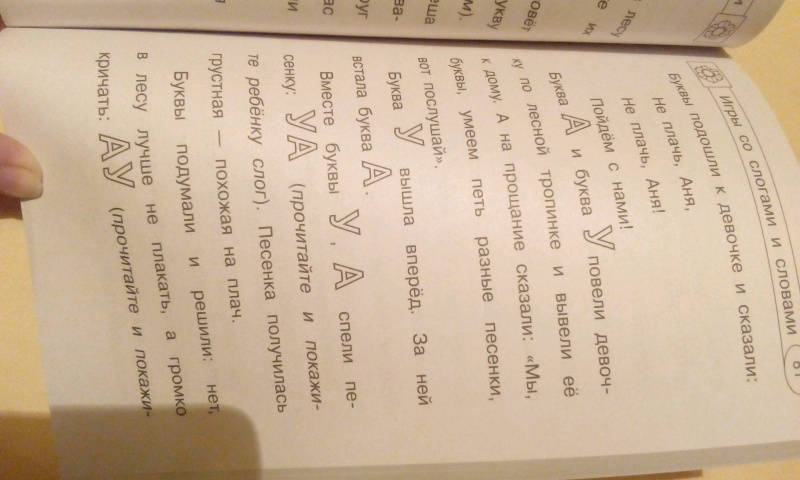 Игры со слогами и словами 61
Буквы подошли к девочке и сказали:
Не плачь, Аня,
Не плачь, Аня!
Пойдём с нами!
Буква А и буква У повели девоч-
ку по лесной тропинке и вывели её
к дому. А на прощание сказали: «Мы,
буквы, умеем петь разные песенки,
вот послушай».
Буква У вышла вперёд. За ней
встала буква А.
Вместе буквы У, А спели пе-
сенку: УА (прочитайте и покажи-
те ребёнку слог). Песенка получилась
грустная — похожая на плач.
Буквы подумали и решили: нет,
в лесу лучше не плакать, а громко
кричать: АУ (прочитайте и покажи-
лесу
их
укву